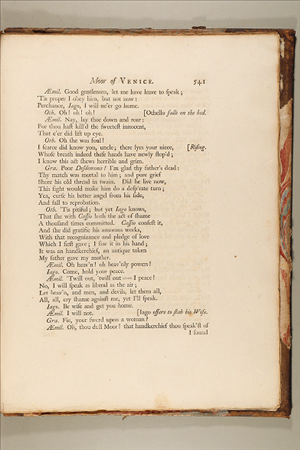 Moor of VENICE. 541
Æmil. Good gentlemen, let me have leave to speak;
'Tis proper I obey him, but not now:
Perchance, Iago, I will ne'er go home.
Oth. Oh! oh! oh! [Othello falls on the bed.
Æmil. Nay, lay thee down and roar:
For thou hast kill'd the sweetest innocent,
That e'er did lift up eye.
Oth. Oh she was foul!
I scarce did know you, uncle; there lyes your niece, [Rising.
Whose breath indeed these hands have newly stop'd;
I know this act shews horrible and grim.
Gra. Poor Desdemona! I'm glad thy father's dead:
Thy match was mortal to him; and pure grief
Shore his old thread in twain. Did he live now,
This sight would make him do a desp'rate turn;
Yes, curse his better angel from his side,
And fall to reprobation.
Oth. 'Tis pitiful; but yet Iago knows,
That she with Cassio hath the act of shame
A thousand times committed. Cassio confest it,
And she did gratifie his amorous works,
With that recognizance and pledge of love
Which I first gave; I saw it in his hand;
It was an handkerchief, an antique token
My father gave my mother.
Æmil. Oh heav'n! oh heav'nly powers!
Iago. Come, hold your peace.
Æmil. 'Twill out, 'twill out—I peace!
No, I will speak as liberal as the air;
Let heav'n, and men, and devils, let them all,
All, all, cry shame against me, yet I'll speak.
Iago. Be wise and get you home.
Æmil. I will not. [Iago offers to stab his Wife.
Gra. Fie, your sword upon a woman?
Æmil. Oh, thou dull Moor! that handkerchief thou speak'st of
I found